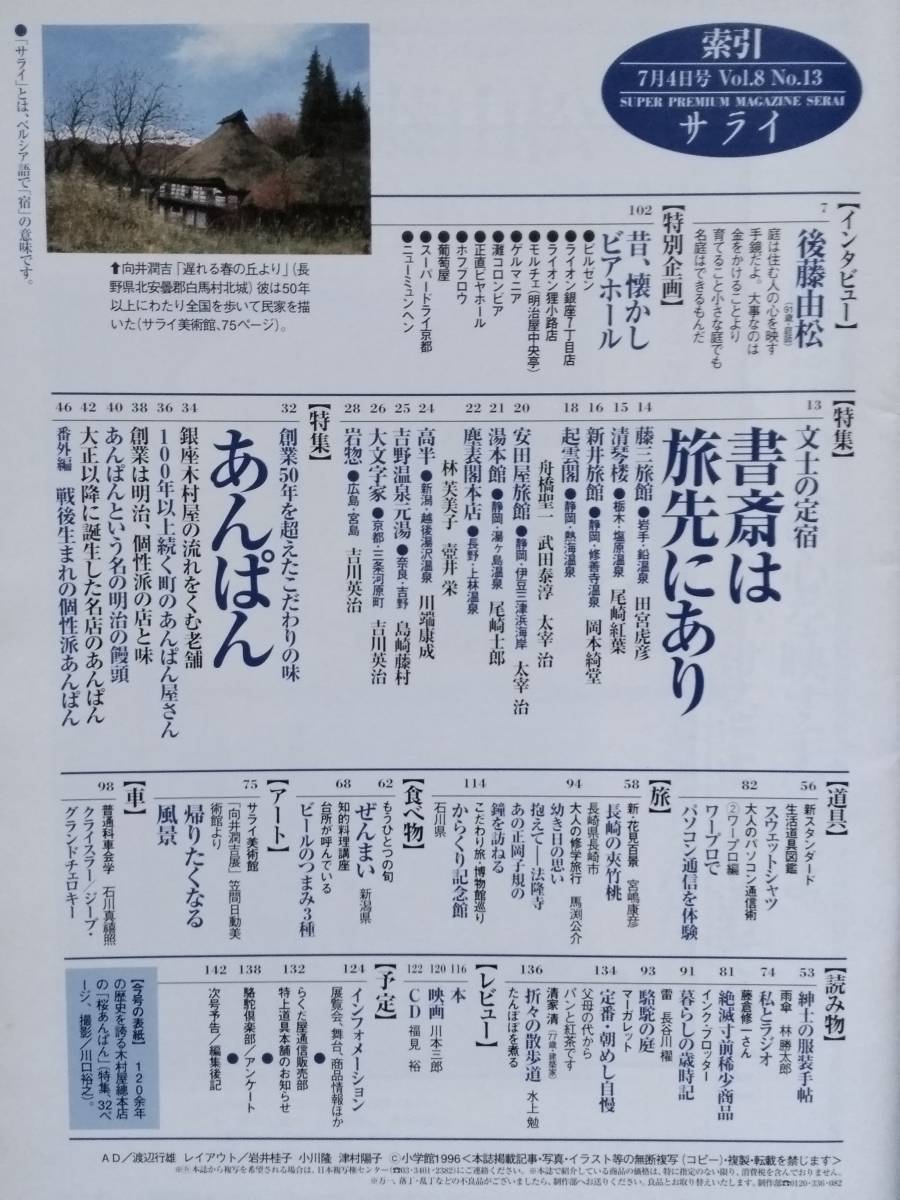 索引
7月4日号 Vol.8 No.13
SUPER PREMIUM MAGAZINE SERAI
サライ
●「サライ」とは、ペルシア語で「宿」の意味です。
⬆向井潤吉「遅れる春の丘より」(長
野県北安曇郡白馬村北城)彼は50年
以上にわたり全国を歩いて民家を描
いた(サライ美術館、75ページ)。
【インタビュー】
7
後藤由松
(91歳・庭師)
庭は住む人の心を映す
手鏡だよ。大事なのは
金をかけることより
育てること小さな庭でも
名庭はできるもんだ
【特別企画】
102
昔、懐かし
ビアホール
●ピルゼン
●ライオン銀座7丁目店
●ライオン狸小路店
●モルチェ(明治屋中央亭)
●ゲルマニア
●灘コロンビア
●正直ビヤホール
●ホフブロウ
●葡萄屋
●スーパードライ京都
●ニューミュンヘン
【特集】
13
文士の定宿
書斎は
旅先にあり
14
藤三旅館●岩手・鉛温泉 田宮虎彦
15
清琴楼●栃木・塩原温泉 尾崎紅葉
16
新井旅館●静岡・修善寺温泉 岡本綺堂
18
起雲閣●静岡・熱海温泉
舟橋聖一 武田泰淳 太宰 治
20
安田屋旅館●静岡・伊豆三津浜海岸 太宰 治
21
湯本館●静岡・湯ヶ島温泉 尾崎士郎
22
塵表閣本店●長野・上林温泉
林 芙美子 壺井 栄
24
高半●新潟・越後湯沢温泉 川端康成
25
吉野温泉元湯●奈良・吉野 島崎藤村
26
大文字家●京都・三条河原町 吉川英治
28
岩惣●広島・宮島 吉川英治
【特集】
32
創業50年を超えたこだわりの味
あんぱん
34
銀座木村屋の流れをくむ老舗
36
100年以上続く町のあんぱん屋さん
38
創業は明治、個性派の店と味
40
あんぱんという名の明治の饅頭
42
大正以降に誕生した名店のあんぱん
46
番外編 戦後生まれの個性派あんぱん
【道具】
56
新スタンダード
生活道具図鑑
スウェットシャツ
82
大人のパソコン通信術
②ワープロ編
ワープロで
パソコン通信を体験
【旅】
58
新・花見百景 宮嶋康彦
長崎の夾竹桃
長崎県長崎市
94
大人の修学旅行 馬渕公介
幼き日の思い
抱えて―法隆寺
あの正岡子規の
鐘を訪ねる
114
こだわり旅・博物館巡り
からくり記念館
石川県
【食べ物】
62
もうひとつの旬
ぜんまい 新潟県
68
知的料理講座
台所が呼んでいる
ビールのつまみ3種
【アート】
75
サライ美術館
「向井潤吉展」笠間日動美
術館より
帰りたくなる
風景
【車】
98
普通科車会学 石川真禧照
クライスラー/ジープ・
グランドチェロキー
【読み物】
53
紳士の服装手帖
雨傘 林 勝太郎
74
私とラジオ
藤倉修一さん
81
絶滅寸前稀少商品
インク・ブロッター
91
暮らしの歳時記
雷 長谷川 櫂
93
駱駝の庭
マーガレット
134
定番・朝めし自慢
父母の代から
パンと紅茶です
清家 清(77歳・建築家)
136
折々の散歩道 水上 勉
たんぽぽを煮る
【レビュー】
116
本
120
映画 川本三郎
122
CD 風見 裕
【予定】
124
インフォメーション
展覧会、舞台、商品情報ほか
132
らくだ屋通信販売部
特上道具本舗のお知らせ
●
138
駱駝倶楽部/アンケート
●
142
次号予告/編集後記
【今号の表紙】 120余年
の歴史を誇る木村屋總本店
の「桜あんぱん」(特集、32ペ
ージ、撮影/川口裕之)。
AD/渡辺行雄 レイアウト/岩井桂子 小川隆 津村陽子 ©小学館1996<本誌掲載記事・写真・イラスト等の無断複写(コピー)・複製・転載を禁じます>
※Ⓡ本誌から複写を希望される場合は、日本複写権センター(☎03-3401-2382)にご連絡ください。※本誌で紹介している商品の価格は、特に指定のない限り、消費税を含んでおりません。
※万一、落丁・乱丁などの不良品がございましたら、制作部へお送りください。良品とお取り替えいたします。制作部☎0120-336-082